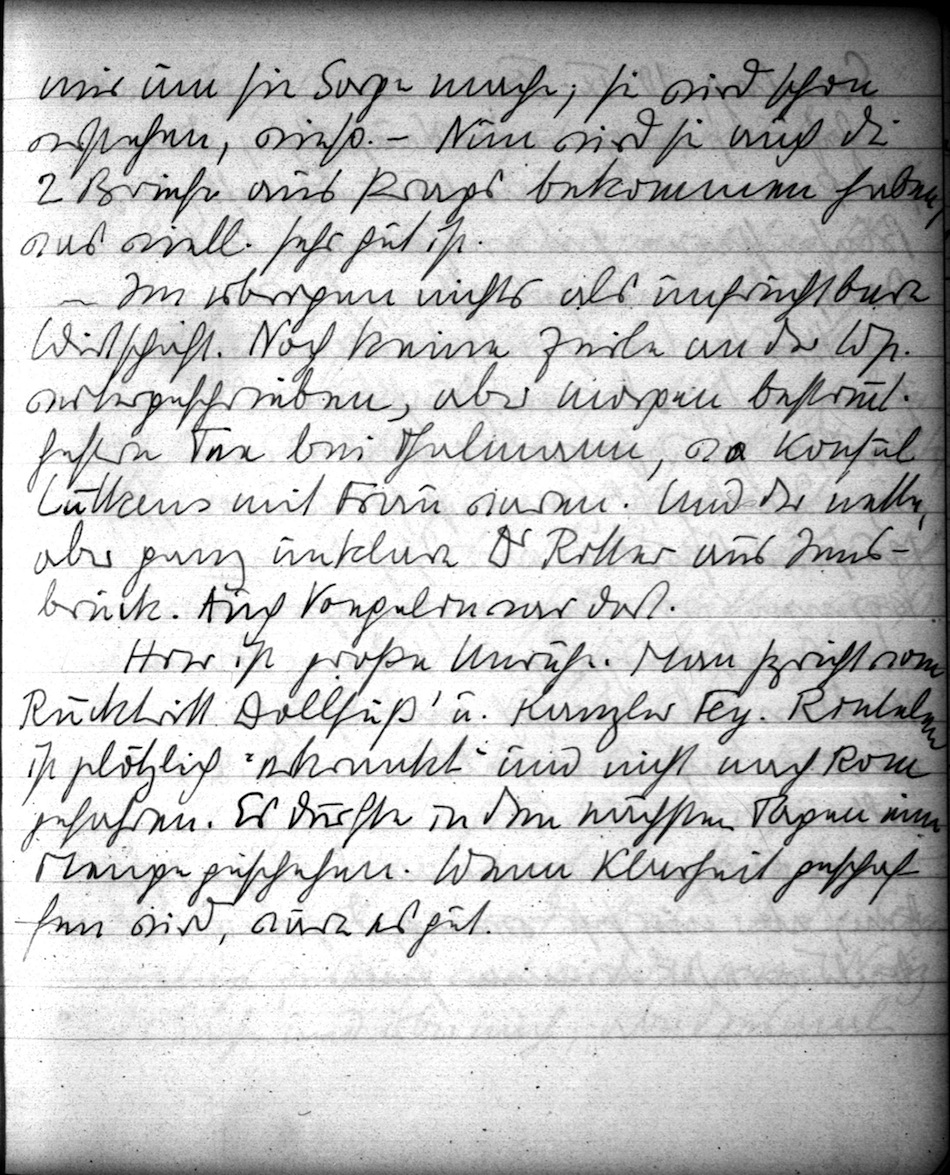 mir um sie Sorge mache; sie wird schon
verstehen, wieso. – Nun wird sie auch die
2 Briefe aus Prag bekommen haben,
was viell. sehr gut ist.
– Im übrigen nichts als unfruchtbare
Wirtschaft. Noch keine Zeile an der Wss.
weitergeschrieben, aber morgen bestimt.
Gestern Tee bei Thalmann, wo Konsul
Lütkens mit Frau waren. Und der nette,
aber ganz unklare Dr Ritter aus Inns-
bruck. Auch Voegelin war dort.
Hier ist große Unruhe. Man spricht vom
Rücktritt Dollfuß' u. Kanzler Fey. Rintelen
ist plötzlich "erkrankt" und nicht nach Rom
gefahren. Es dürfte in den nächsten Tagen eine
Menge geschehen. Wenn Klarheit geschaf-
fen wird, wäre es gut.